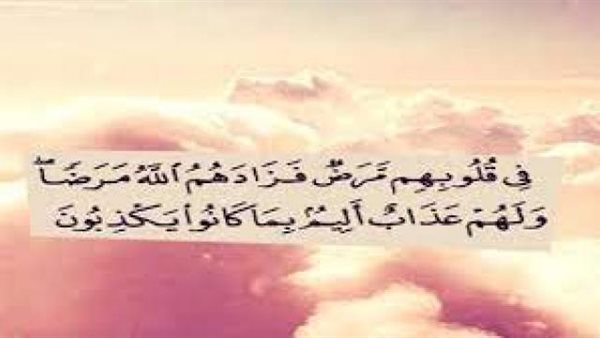 فِي قُلُوبِهِم مَّرَضٌ فَزَادَهُمُ ٱللَّهُ مَرَضًاۖ
وَلَهُمْ عَذَابٌ أَلِيمٌۢ بِمَا كَانُوا۟ يَكْذِبُونَ